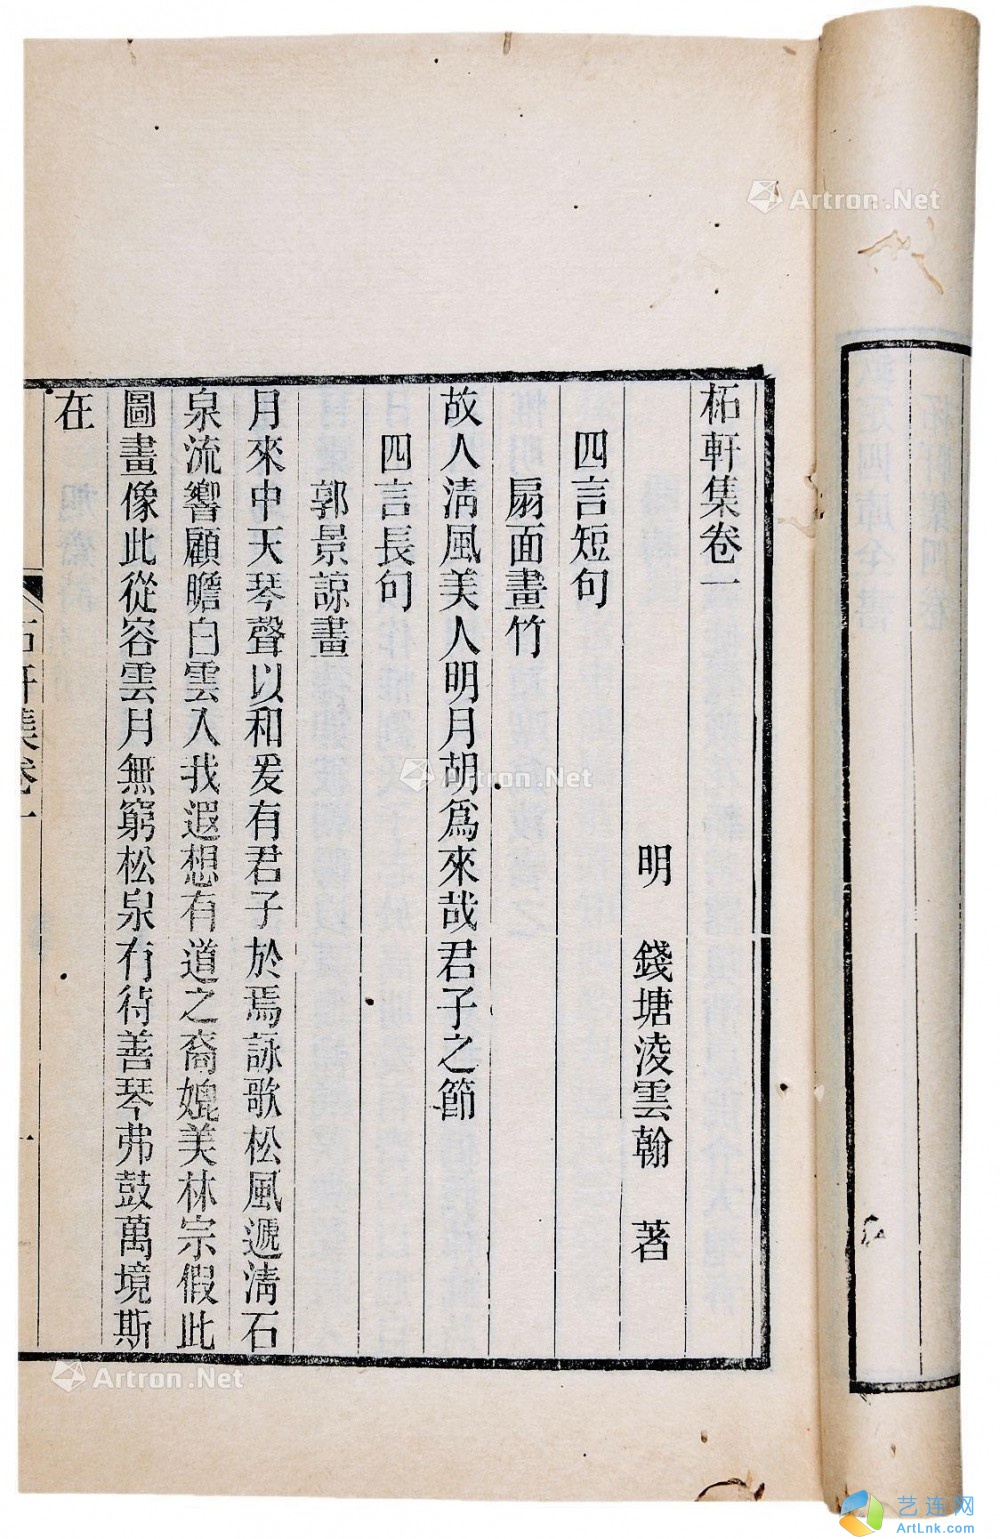 柘軒集卷一
明　錢塘淩雲翰　著
四言短句
扇面畫竹
故人淸風美人明月胡爲來哉君子之節
四言長句
郭景諒畫
月來中天琴聲以和爰有君子於焉詠歌松風遞淸石
泉流響顧瞻白雲入我遐想有道之裔媲美林宗假此
圖畫像此從容雲月無窮松泉有待善琴弗鼓萬境斯
在
集卷一
一
Artron.Net
Artron.Net
Artron.Net
艺连网
ArtLnk.com